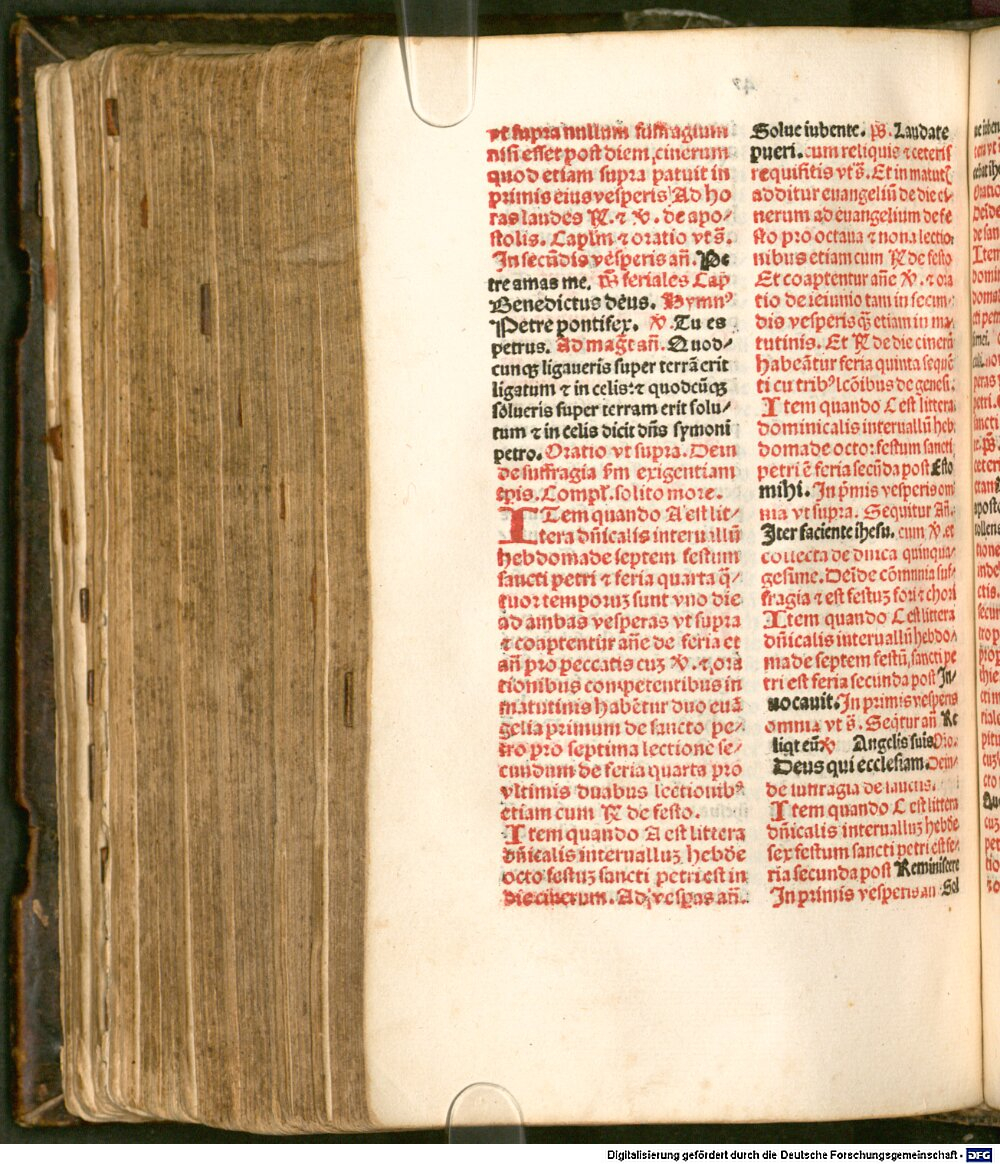 vt supra nullum suffragium
nisi esset post diem cinerum
quod etiam supra patuit in
primis eius vesperis Ad ho
ras laudes R. ⁊ V. de apo⸗
stolis. Caplm ⁊ oratio vt s̄.
In secūdis vesperis añ. Pe
tre amas me. ps̄ feriales Cap
Benedictus deus. Hymnꝰ
Petre pontifex. V. Tu es
petrus. Ad mag̃t añ. Quod⸗
cunqꝫ ligaueris super terrā erit
ligatum ⁊ in celis: ⁊ quodcūqꝫ
solueris super terram erit solu⸗
tum ⁊ in celis dicit dñs symoni
petro. Oratio vt supra. Dein
de suffragia s̄m exigentiam
tp̄is. Compl. solito more.
ITem quando A est lit⸗
tera dñicalis interuallū
hebdomade septem festum
sancti petri ⁊ feria quarta q̄⸗
tuor temporuꝫ sunt vno die
ad ambas vesperas vt supra
⁊ coaptentur añe de feria et
añ pro peccatis cuꝫ V. ⁊ ora
tionibus competentibus in
matutinis habētur duo euā
gelia primum de sancto pe⸗
tro pro septima lectione se⸗
cundum de feria quarta pro
vltimis duabus lectionibꝰ
etiam cum R de festo.
Item quando A est littera
dñicalis interualluꝫ hebde
octo festuꝫ sancti petri est in
die cinerum. Ad vesp̄as añ.
Solue iubente. ps̄. Laudate
pueri. cum reliquis ⁊ ceteris
requisitis vt s̄. Et in matutī
additur euangeliū de die ci⸗
nerum ad euangelium de fe
sto pro octaua ⁊ nona lectio⸗
nibus etiam cum R de festo
Et coaptentur añe V. ⁊ ora
tio de ieiunio tam in secun⸗
dis vesperis qꝫ etiam in ma⸗
tutinis. Et R de die cinerū
habeātur feria quinta sequē
ti cū tribꝰ lcōibus de genesi.
Item quando C est littera
dominicalis interuallū heb
domade octo: festum sancti
petri ē feria secūda post Esto
mihi. In p̄mis vesperis om
nia vt supra. Sequitur Añ.
Iter faciente ihesu. cum V. et
collecta de dnica quinqua⸗
gesime. Deīde cōmunia suf⸗
fragia ⁊ est festuꝫ fori ⁊ chori
Item quando C est littera
dñicalis interuallū hebdo⸗
made septem festū sancti pe
tri est feria secunda post In⸗
uocauit. In primis vesperis
omnia vt s̄. Seqtur añ Re
liqt eū V Angelis suis Oro.
Deus qui ecclesiam. Dein⸗
de suffragia de laudis.
Item quando C est littera
dñicalis interualluꝫ hebde
sex festum sancti petri est fe⸗
ria secunda post Reminiscere
In primis vesperis añ Sol
Digitalisierung gefördert durch die Deutsche Forschungsgemeinschaft - DFG